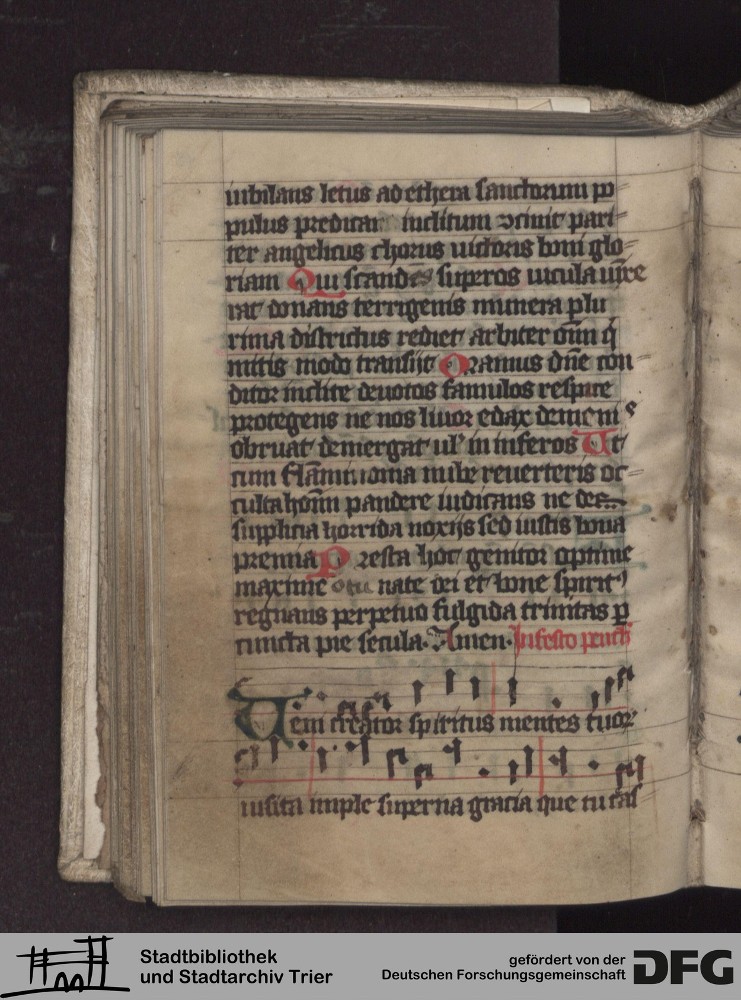 iubilans letus ad ethera sanctorum po
pulus predicat inclitum concinit pari
ter angelicus chorus uictoris boni glo
riam Qui scandēs superos uicula uīxe
rat donans terrigenis munera plu
rima districtus rediet arbiter oīm q̄
mitis modo transijt Oramus dn̄e con
ditor inclite deuotos famulos respice
protegens ne nos liuor edax demonis
obruat demergat ul' in inferos Ut
cum nube reuerteris oc
culta hoīm pandere iudicans ne des
supplicia horrida noxijs sed iustis bona
premia Presta hoc genitor optime
maxime nate dei et bone spirit'
regnans perpetuo fulgida trinitas p
cuncta pie secula. Amen. In festo
Veni creator spiritus mentes tuor
iusita imple superna gracia que tu cas
Stadtbibliothek
und Stadtarchiv Trier
gefördert von der
Deutschen Forschungsgemeinschaft
DFG